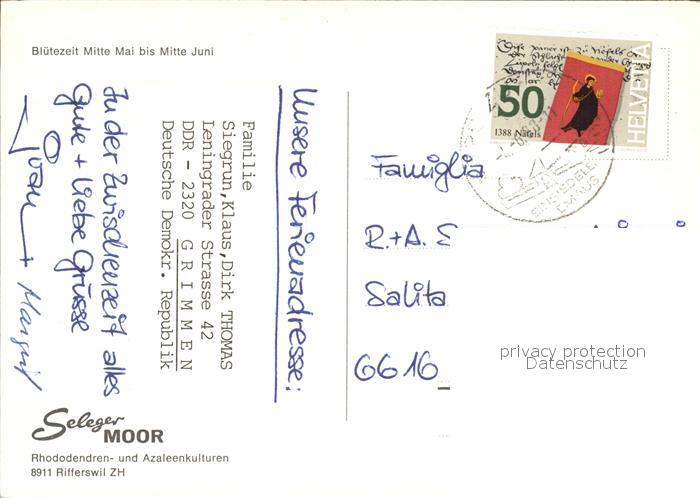 Blütezeit Mitte Mai bis Mitte Juni
Unsere Ferienadresse:
Familie
Siegrun,Klaus,Dirk THOMAS
Leningrader Strasse 42
DDR - 2320 G R I M M E N
Deutsche Demokr. Republik
In der Zwischenzeit alles
Gute + liebe Grüsse
+ Margrit
Seleger
MOOR
Rhododendren- und Azaleenkulturen
8911 Rifferswil ZH
HELVETIA
50
1388 Näfels
EINSIEDELN
Famiglia
R.+A.
Salita
6616
privacy protection
Datenschutz